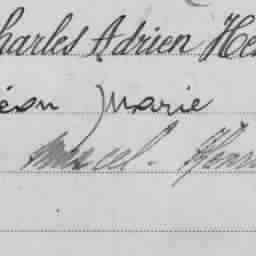 Charles Adrien He
éon Marie
Marcel - Henri